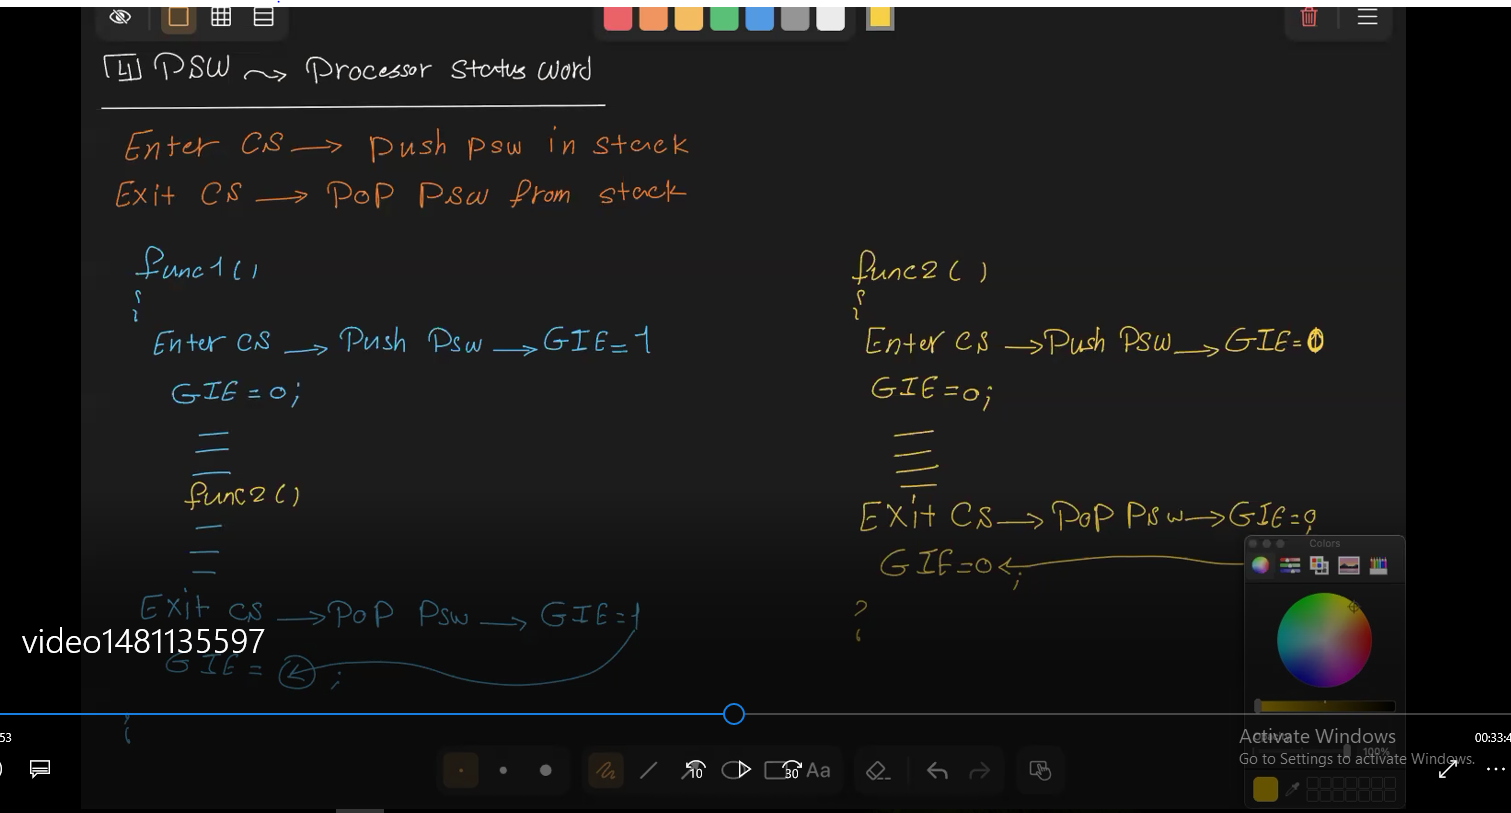 4 PSW → Processor Status Word
Enter CS → Push psw in stack
Exit CS → POP PSW from stack
func1()
{
Enter CS → Push PSW → GIE=1
GIE = 0;
func2()
Exit CS → POP PSW → GIE=1
GIE = ;
}
func2()
{
Enter CS → Push PSW → GIE=0
GIE=0;
Exit CS → POP PSW → GIE=0
GIE=0;
}
video1481135597
Colors
53
00:33:4
10
30
Aa
100%
Activate Windows
Go to Settings to activate Windows.